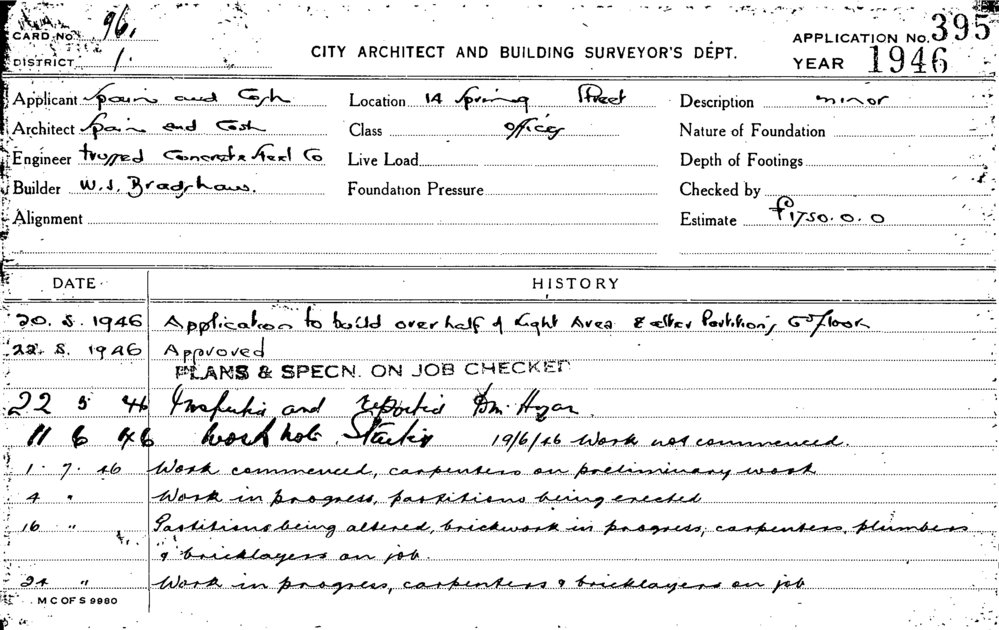 CARD No. 96.
DISTRICT 1.
CITY ARCHITECT AND BUILDING SURVEYOR'S DEPT.
APPLICATION No. 395
YEAR 1946
Applicant Spain and Cosh Location 14 Spring Street Description minor
Architect Spain and Cosh Class offices Nature of Foundation
Engineer Trussed Concrete Steel Co Live Load Depth of Footings
Builder W.J. Bradshaw. Foundation Pressure Checked by
Alignment Estimate £1750.0.0
DATE HISTORY
20. 5. 1946 Application to build over half of Light Area & alter Partitions, Gd floor
22. 5. 1946 Approved
PLANS & SPECN. ON JOB CHECKED
22 5 46 Inspected and reported
11 6 46 Work not Started 19/6/46 Work not commenced.
1. 7. 46 Work commenced, carpenters on preliminary work
4 " Work in progress, partitions being erected
16 " Partitions being altered, brickwork in progress, carpenters, plumbers
& bricklayers on job.
24 " Work in progress, carpenters & bricklayers on job
M C OF S 9980